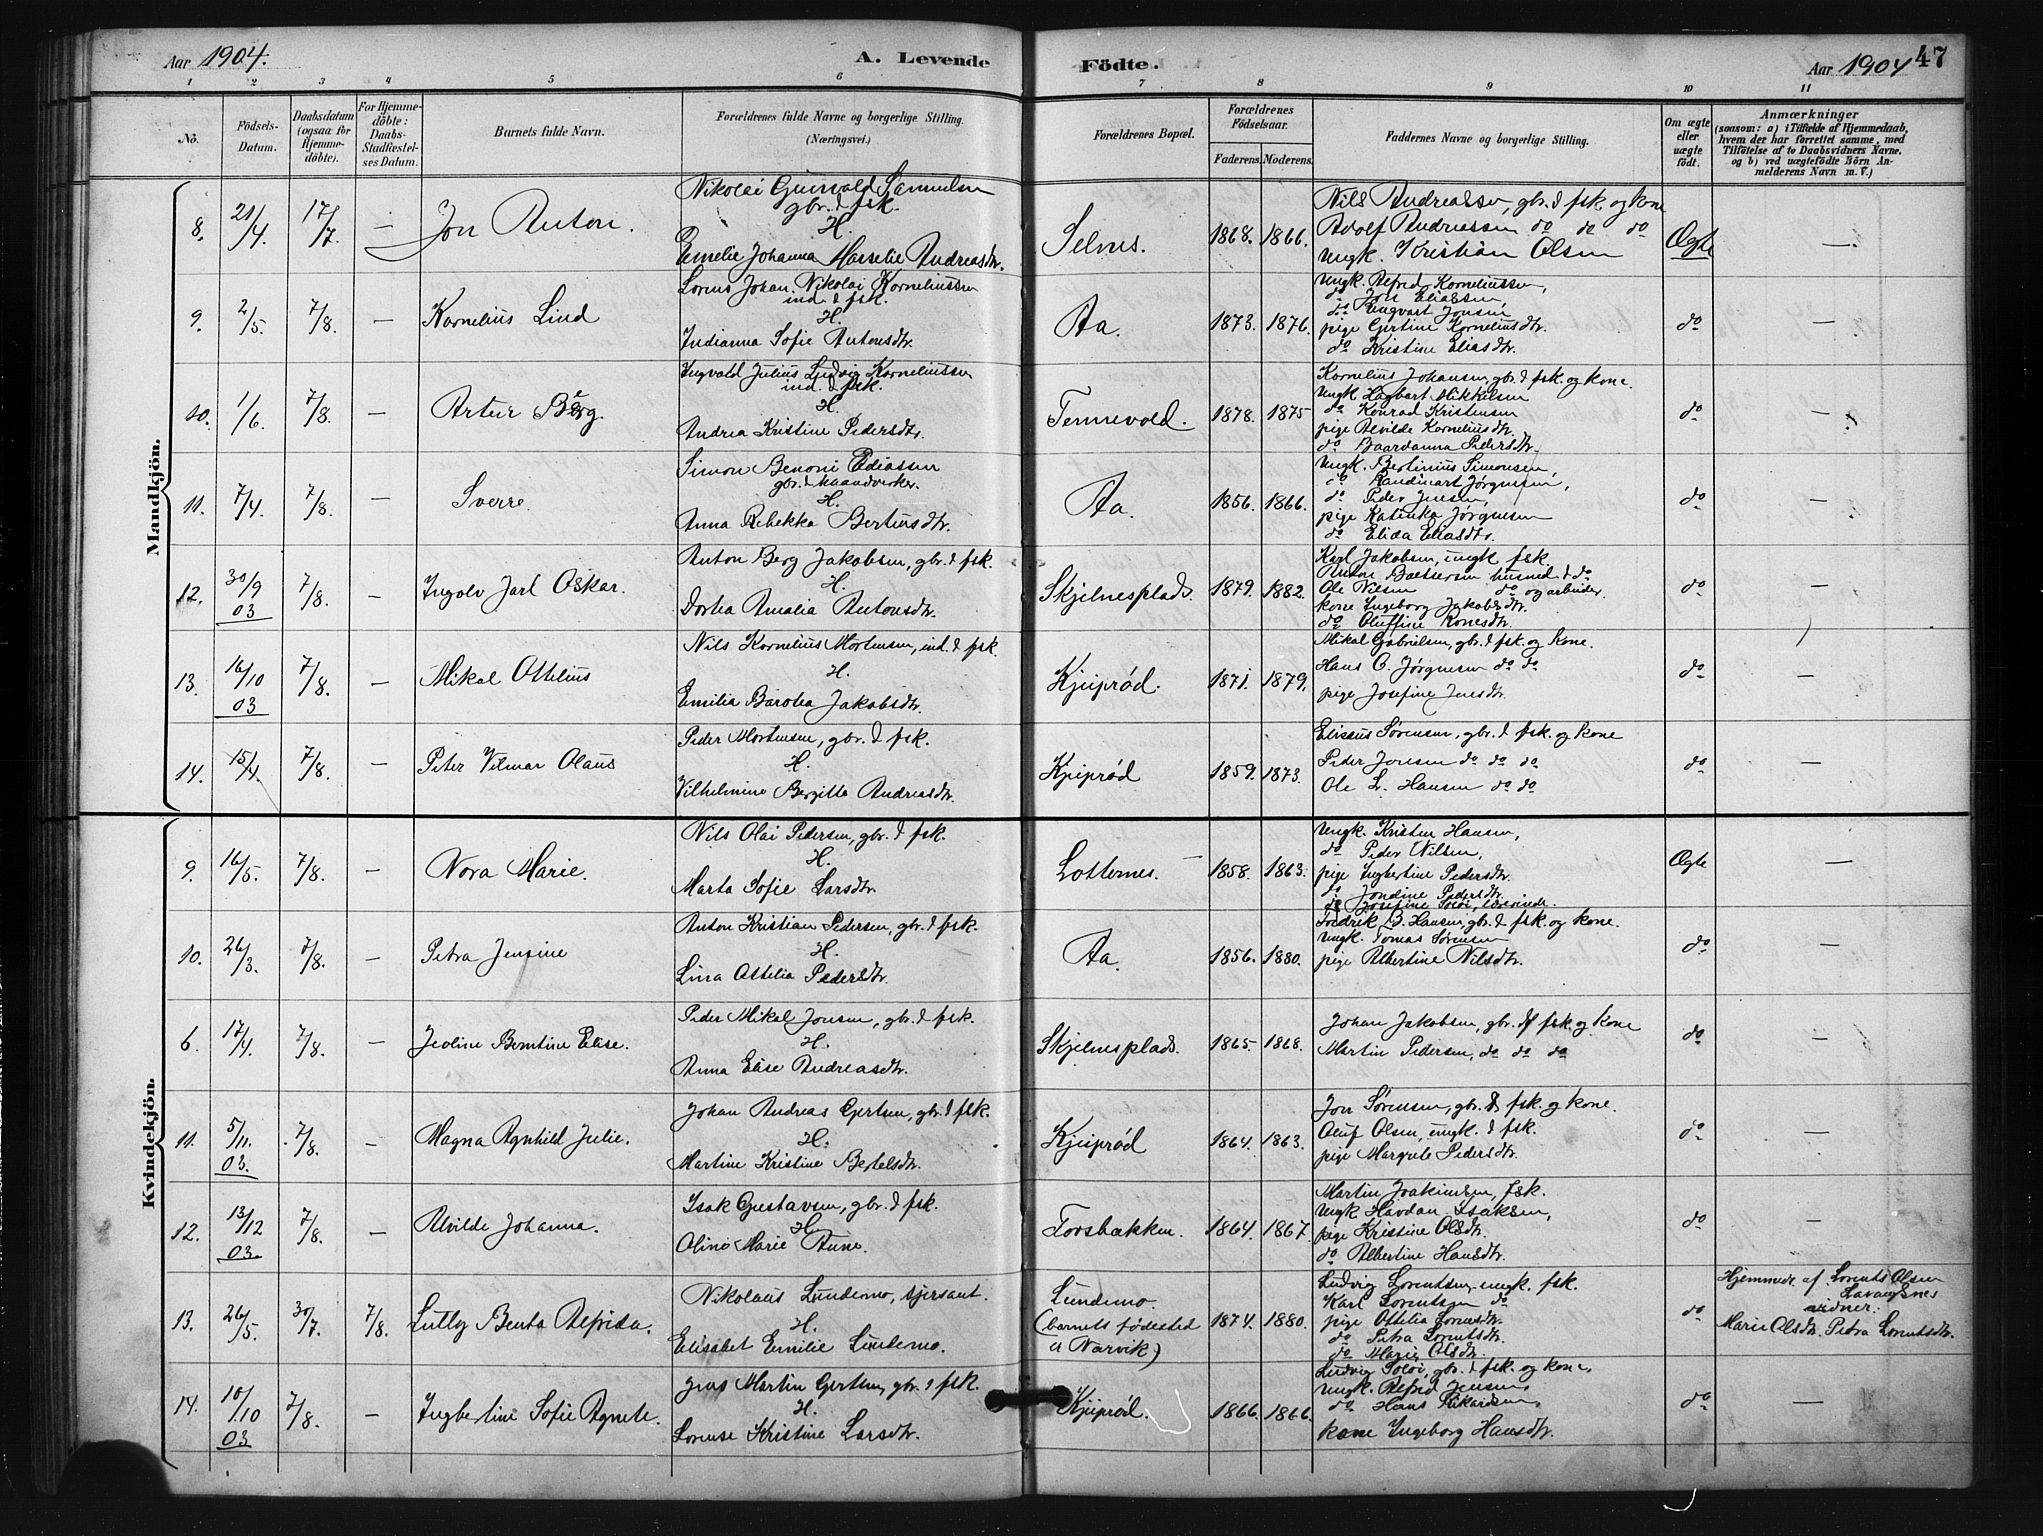 Aar 1904.
A. Levende
Födte.
Aar 1904
47
1 2 3 4 5 6 7 8 9 10 11
No.
Födsels-
Datum.
Daabsdatum
(ogsaa for
Hjemme-
döbte).
For Hjemme-
döbte:
Daabs-
Stadfæstel-
ses Datum.
Barnets fulde Navn.
Forældrenes fulde Navne og borgerlige Stilling.
(Næringsvei.)
Forældrenes Bopæl.
Forældrenes
Födselsaar.
Faderens. Moderens.
Faddernes Navne og borgerlige Stilling.
Om ægte
eller
uægte
födt.
Anmærkninger
(saasom: a) i Tilfælde af Hjemmedaab,
hvem der har forrettet samme, med
Tilföielse af to Daabsvidners Navne,
og b) ved uægtefödte Börn An-
melderens Navn m. V.)
Mandkjön.
8. 21/4. 17/7. — Jon Anton.
Nikolai Grinvald Samuelsen
gbr. & fsk.
H.
Emelie Johanna Marselie Andreasdtr.
Selnes. 1868. 1866.
Nils Andreassen, gbr. & fsk og kone
Adolf Andreassen do do do
ungk. Kristian Olsen
Ægte —
9. 2/5. 7/8. — Kornelius Lind
Lorens Johan Nikolai Korneliussen
ind. & fsk.
H.
Indianna Sofie Antonsdtr.
Aa. 1873. 1876.
ungk. Alfred Korneliussen,
do Jon Eliassen,
do Ingvart Jensen
pige Gertine Korneliusdtr.
do Kristine Eliasdtr.
do —
10. 1/6. 7/8. — Artur Berg.
Ingvald Julius Ludvig Korneliussen
ind. & fsk.
H.
Andrea Kristine Pedersdtr.
Tennevold. 1878. 1875
Kornelius Johansen, gbr. & fsk. og kone.
ungk Hagbart Mikkelsen
do Konrad Kristensen
pige Alvilde Korneliusdtr.
do Baardanna Pedersdtr.
do —
11. 7/4. 7/8. — Sverre.
Simon Benoni Ediassen
gbr. & haandverker.
H.
Anna Rebekka Bertensdtr.
Aa. 1856. 1866.
ungk. Bertinius Simonsen,
do Randinart Jørgensen,
do Peder Jensen,
pige Katinka Jørgensen
do Elida Eliasdtr.
do —
12. 30/9 03 7/8. — Ingolv Jarl Oskar.
Anton Berg Jakobsen, gbr. & fsk.
H.
Dortea Amalia Antonsdtr.
Skjelnesplads. 1879. 1882.
Karl Jakobsen, ungk fsk.
Anton Baltsersen husmd. & do
Ole Nilsen do og arbeider.
kone Ingeborg Jakobsdtr.
do Oluffine Konesdtr.
do —
13. 16/10 03 7/8. — Mikal Ottelius
Nils Kornelius Mortensen, ind. & fsk.
H.
Emilia Barolea Jakobsdtr.
Kjeiprød. 1871. 1879.
Mikal Gabrielsen, gbr. & fsk. og kone.
Hans C. Jørgensen do do
pige Josefine Jensdtr.
do —
14. 15/4. 7/8. — Peter Vilmar Olaus
Peder Mortensen, gbr. & fsk.
H.
Vilhelmine Bergitte Andreasdtr.
Kjeiprød 1859. 1873.
Elisæus Sørensen, gbr. & fsk. og kone
Peder Jonsen do do do
Ole L. Hansen do do
do —
Kvindekjön.
9. 16/5. 7/8. — Nora Marie.
Nils Olai Pedersen, gbr. & fsk.
H.
Marta Sofie Larsdtr.
Lotternes. 1858. 1863.
ungk. Kristen Hansen,
do Peder Nilsen,
pige Ingbertine Pedersdtr.
do Jondine Pedersdtr.
do Josefine Soløi, lærerinde.
Ægte —
10. 26/3. 7/8. — Petra Jensine
Anton Kristian Pedersen, gbr. & fsk.
H.
Lina Ottelia Pedersdtr.
Aa. 1856. 1880.
Fredrik B. Hansen, gbr. & fsk. og kone.
ungk. Tomas Sørensen
pige Albertine Nilsdtr.
do —
6. 17/4. 7/8. — Jeoline Berntine Elise.
Peder Mikal Jonsen, gbr. & fsk.
H.
Anna Elise Andreasdtr.
Skjelnesplads. 1865. 1868.
Johan Jakobsen, gbr. & fsk. og kone
Martin Pedersen, do do do
do —
11. 5/11. 03. 7/8. — Magna Agnhild Julie.
Johan Andreas Gertsen, gbr. & fsk.
H.
Martine Kristine Bertelsdtr.
Kjeiprød 1864. 1863.
Jon Sørensen, gbr. & fsk. og kone.
Oluf Olsen, ungk. & fsk.
pige Margrete Pedersdtr.
do —
12. 13/12 03. 7/8. — Alvilde Johanna.
Isak Gustavsen, gbr. & fsk.
H.
Oline Marie Aune.
Forsbakken. 1864. 1867.
Martin Joakimsen, fsk.
ungk Havdan Isaksen,
pige Kristine Olsdtr.
do Albertine Hansdtr.
do —
13. 26/5. 30/7. 7/8. Lully Benta Alfrida.
Nikolaus Lundemo, sjersant.
H.
Elisabet Emilie Lundemo.
Lundemo.
(barnets fødested
er Narvik)
1874. 1880.
Ludvig Lorentsen ungk. fsk.
Karl Lorentsen do
pige Ottelia Lorentsdtr.
do Petra Lorentsdtr.
do Marie Olsdtr.
do
Hjemmedr. af Lorents Olsen
Lavangsnes
vidner:
Marie Olsdtr. Petra Lorentsdtr.
14. 10/10 03 7/8. — Ingbertine Sofie Agnete.
Jens Martin Gertsen, gbr. & fsk.
H.
Lorense Kristine Larsdtr.
Kjeiprød. 1866. 1866.
Ludvig Soløi, gbr. & fsk. og kone,
ungk. Alfred Jensen,
do Hans Rikardsen,
kone Ingeborg Hansdtr.
do —